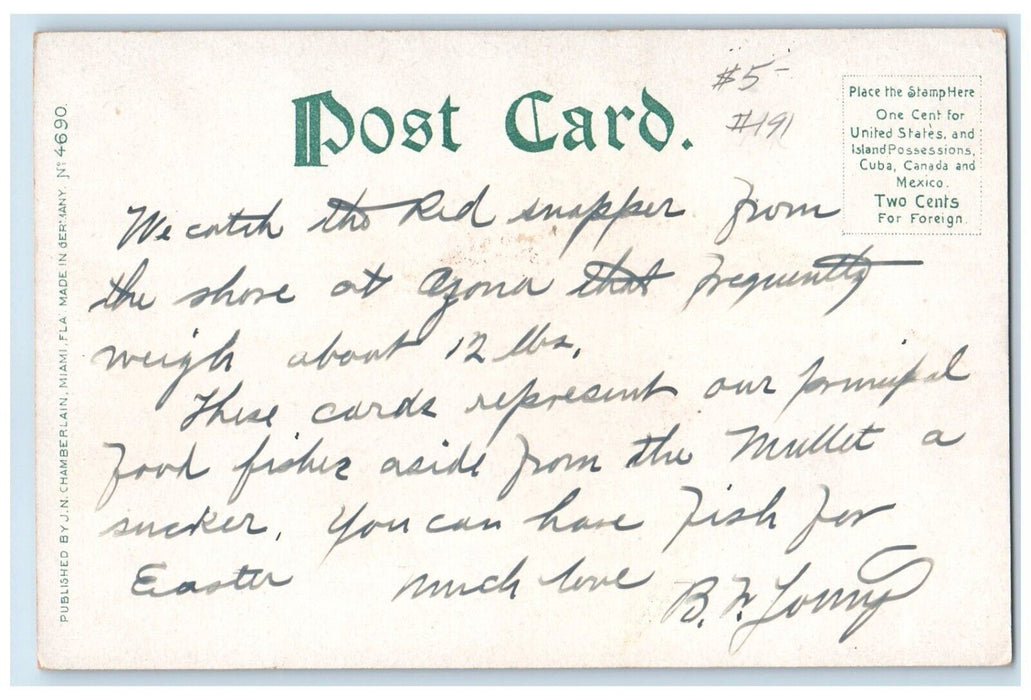 Post Card.
$5-
#191
Place the Stamp Here
One Cent for
United States, and
Island Possessions,
Cuba, Canada and
Mexico.
Two Cents
For Foreign.
PUBLISHED BY J.N. CHAMBERLAIN, MIAMI, FLA. MADE IN GERMANY. No 4690.
We catch the Red snapper from
the shore at Ozona that frequently
weigh about 12 lbs.
These cards represent our principal
food fishes aside from the Mullet a
sucker. You can have fish for
Easter much love B. F.